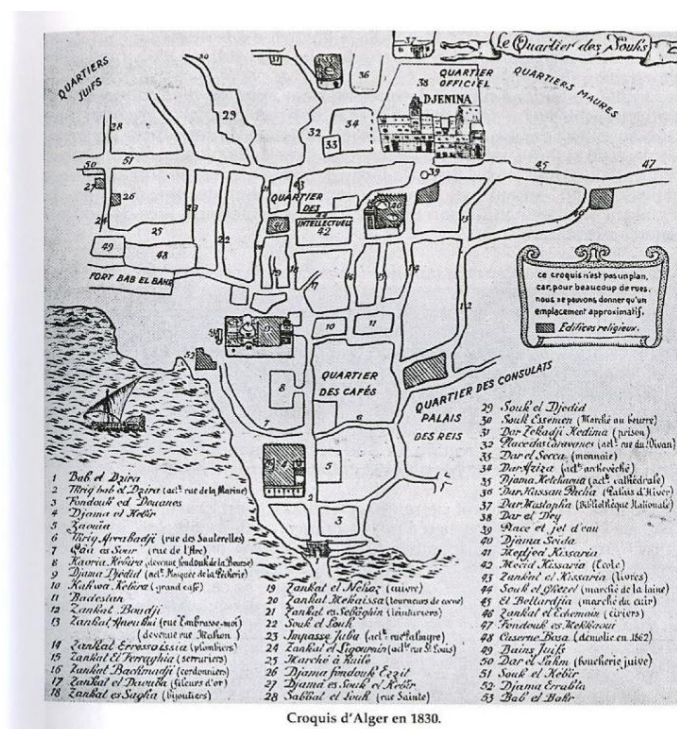 Le Quartier des Souks
QUARTIERS
JUIFS
QUARTIER
OFFICIEL
DJENINA
QUARTIERS MAURES
QUARTIER
DES
INTELLECTUELS
FORT BAB EL BAHR
QUARTIER
DES CAFÉS
QUARTIER DES CONSULATS
PALAIS
DES REIS
ce croquis n'est pas un plan,
car, pour beaucoup de rues,
nous ne pouvons donner qu'un
emplacement approximatif.
Edifices religieux.
1 Bab el Dzira
2 Thrig bab el Dzira (actt rue de la Marine)
3 Fondouk ed Douanes
4 Djama el Kebir
5 Zaouïa
6 Thrig Arrabadji (rue des Sauterelles)
7 Qaâ es Sour (rue de l'Arc)
8 Kaoria Kebira (devenue fondouk de la Bourse)
9 Djama Djedid (actt Mosquée de la Pêcherie)
10 Kahwa Kebira (grand café)
11 Badestan
12 Zankat Boudji
13 Zankat (rue Embrasse-moi)
devenue rue Mahon)
14 Zankat Errossaissia (plombiers)
15 Zankat El Ferraghia (serruriers)
16 Zankat Bachmadji (cordonniers)
17 Zankat el Daouba (fileurs d'or)
18 Zankat es Sagha (bijoutiers)
19 Zankat el Nehas (cuivre)
20 Zankat Mekaissa (tourneurs de corne)
21 Zankat es Sebbaghin (teinturiers)
22 Souk el Souk
23 Impasse Juba (actt rue Palmyre)
24 Zankat el (actt rue St Louis)
25 Marché à huile
26 Djama fondouk Ezzit
27 Djama es Souk el Kebir
28 Sabbat el Souk (rue Sainte)
29 Souk el Djedid
30 Souk Essemen (Marché au beurre)
31 Dar Zekadji Kedima (prison)
32 Place des Caravanes (actt rue du Divan)
33 Dar el Secca (monnaie)
34 Dar Aziza (actt archevêché)
35 Djama Ketchaoua (actt cathédrale)
36 Dar Hassan Pacha (Palais d'Hiver)
37 Dar Mustapha (Bibliothèque Nationale)
38 Dar el Bey
39 Place et jet d'eau
40 Djama Seida
41 Mesdjed Kissaria
42 Mecid Kissaria (École)
43 Zankat el Kissaria (livres)
44 Souk el Ghezel (marché de la laine)
45 El Bellardjia (marché du cuir)
46 Zankat el Echemain (ciriers)
47 Fondouk es Mekkaoui
48 Caserne Basa (démolie en 1862)
49 Bains Juifs
50 Dar el Lahm (boucherie juive)
51 Souk el Kebir
52 Djama Errabta
53 Bab el Bahr
Croquis d'Alger en 1830.